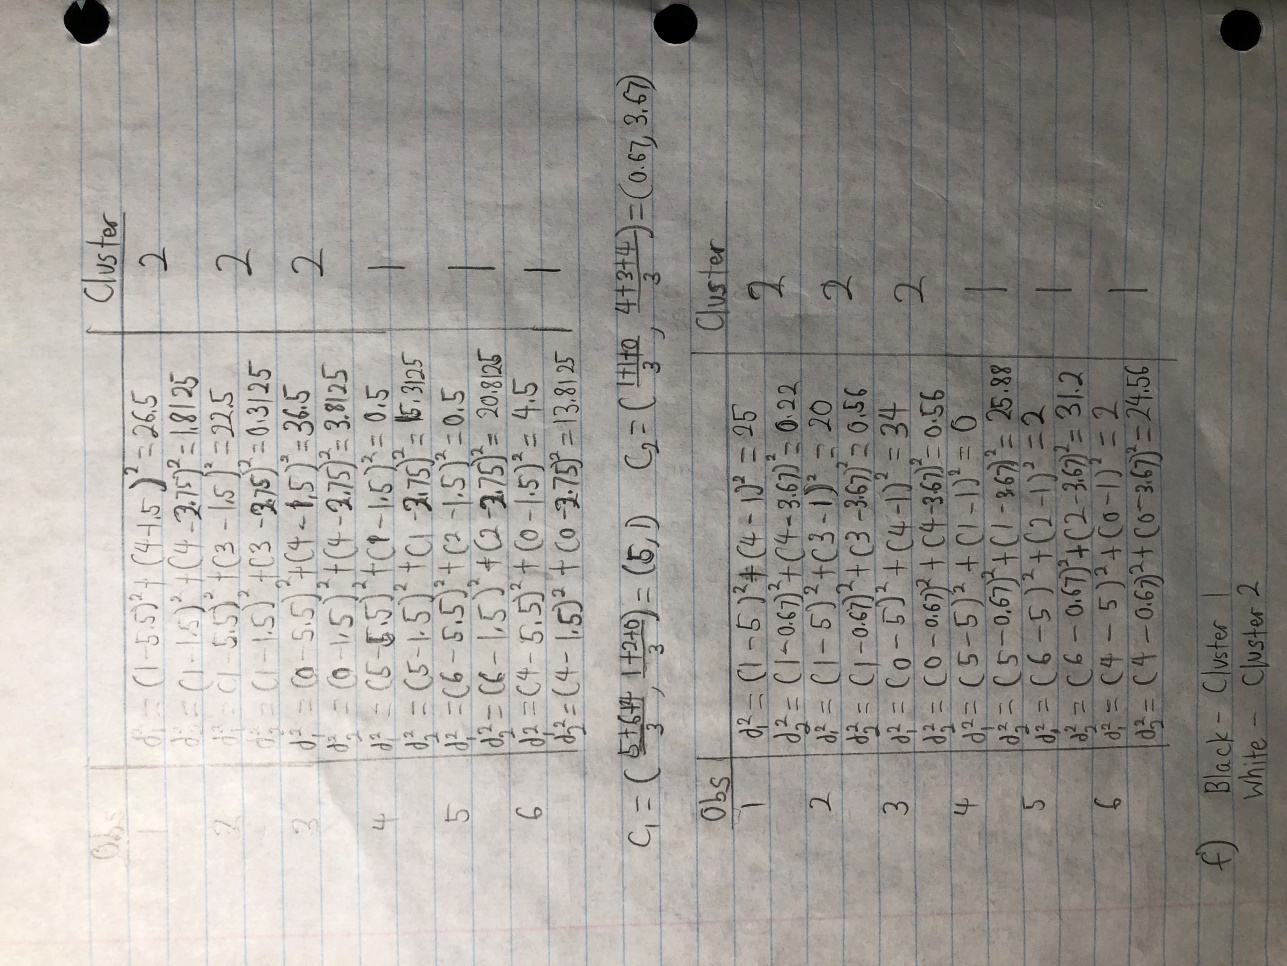 Obs Cluster
1 d₁² = (1-5.5)²+(4-1.5)²=26.5 2
d₂² = (1-1.5)²+(4-2.75)²=1.8125
2 d₁² = (1-5.5)²+(3-1.5)²=22.5 2
d₂² = (1-1.5)²+(3-2.75)²=0.3125
3 d₁² = (0-5.5)²+(4-1.5)²=36.5 2
d₂² = (0-1.5)²+(4-2.75)²=3.8125
4 d₁² = (5-5.5)²+(1-1.5)²=0.5 1
d₂² = (5-1.5)²+(1-2.75)²=15.3125
5 d₁² = (6-5.5)²+(2-1.5)²=0.5 1
d₂² = (6-1.5)²+(2-2.75)²=20.8125
6 d₁² = (4-5.5)²+(0-1.5)²=4.5 1
d₂² = (4-1.5)²+(0-2.75)²=13.8125
C₁ = (5+6+4/3, 1+2+0/3) = (5,1) C₂ = (1+1+0/3, 4+3+4/3)=(0.67, 3.67)
Obs Cluster
1 d₁² = (1-5)²+(4-1)²=25 2
d₂² = (1-0.67)²+(4-3.67)²=0.22
2 d₁² = (1-5)²+(3-1)²=20 2
d₂² = (1-0.67)²+(3-3.67)²=0.56
3 d₁² = (0-5)²+(4-1)²=34 2
d₂² = (0-0.67)²+(4-3.67)²=0.56
4 d₁² = (5-5)²+(1-1)²=0 1
d₂² = (5-0.67)²+(1-3.67)²=25.88
5 d₁² = (6-5)²+(2-1)²=2 1
d₂² = (6-0.67)²+(2-3.67)²=31.2
6 d₁² = (4-5)²+(0-1)²=2 1
d₂² = (4-0.67)²+(0-3.67)²=24.56
f) Black - Cluster 1
White - Cluster 2